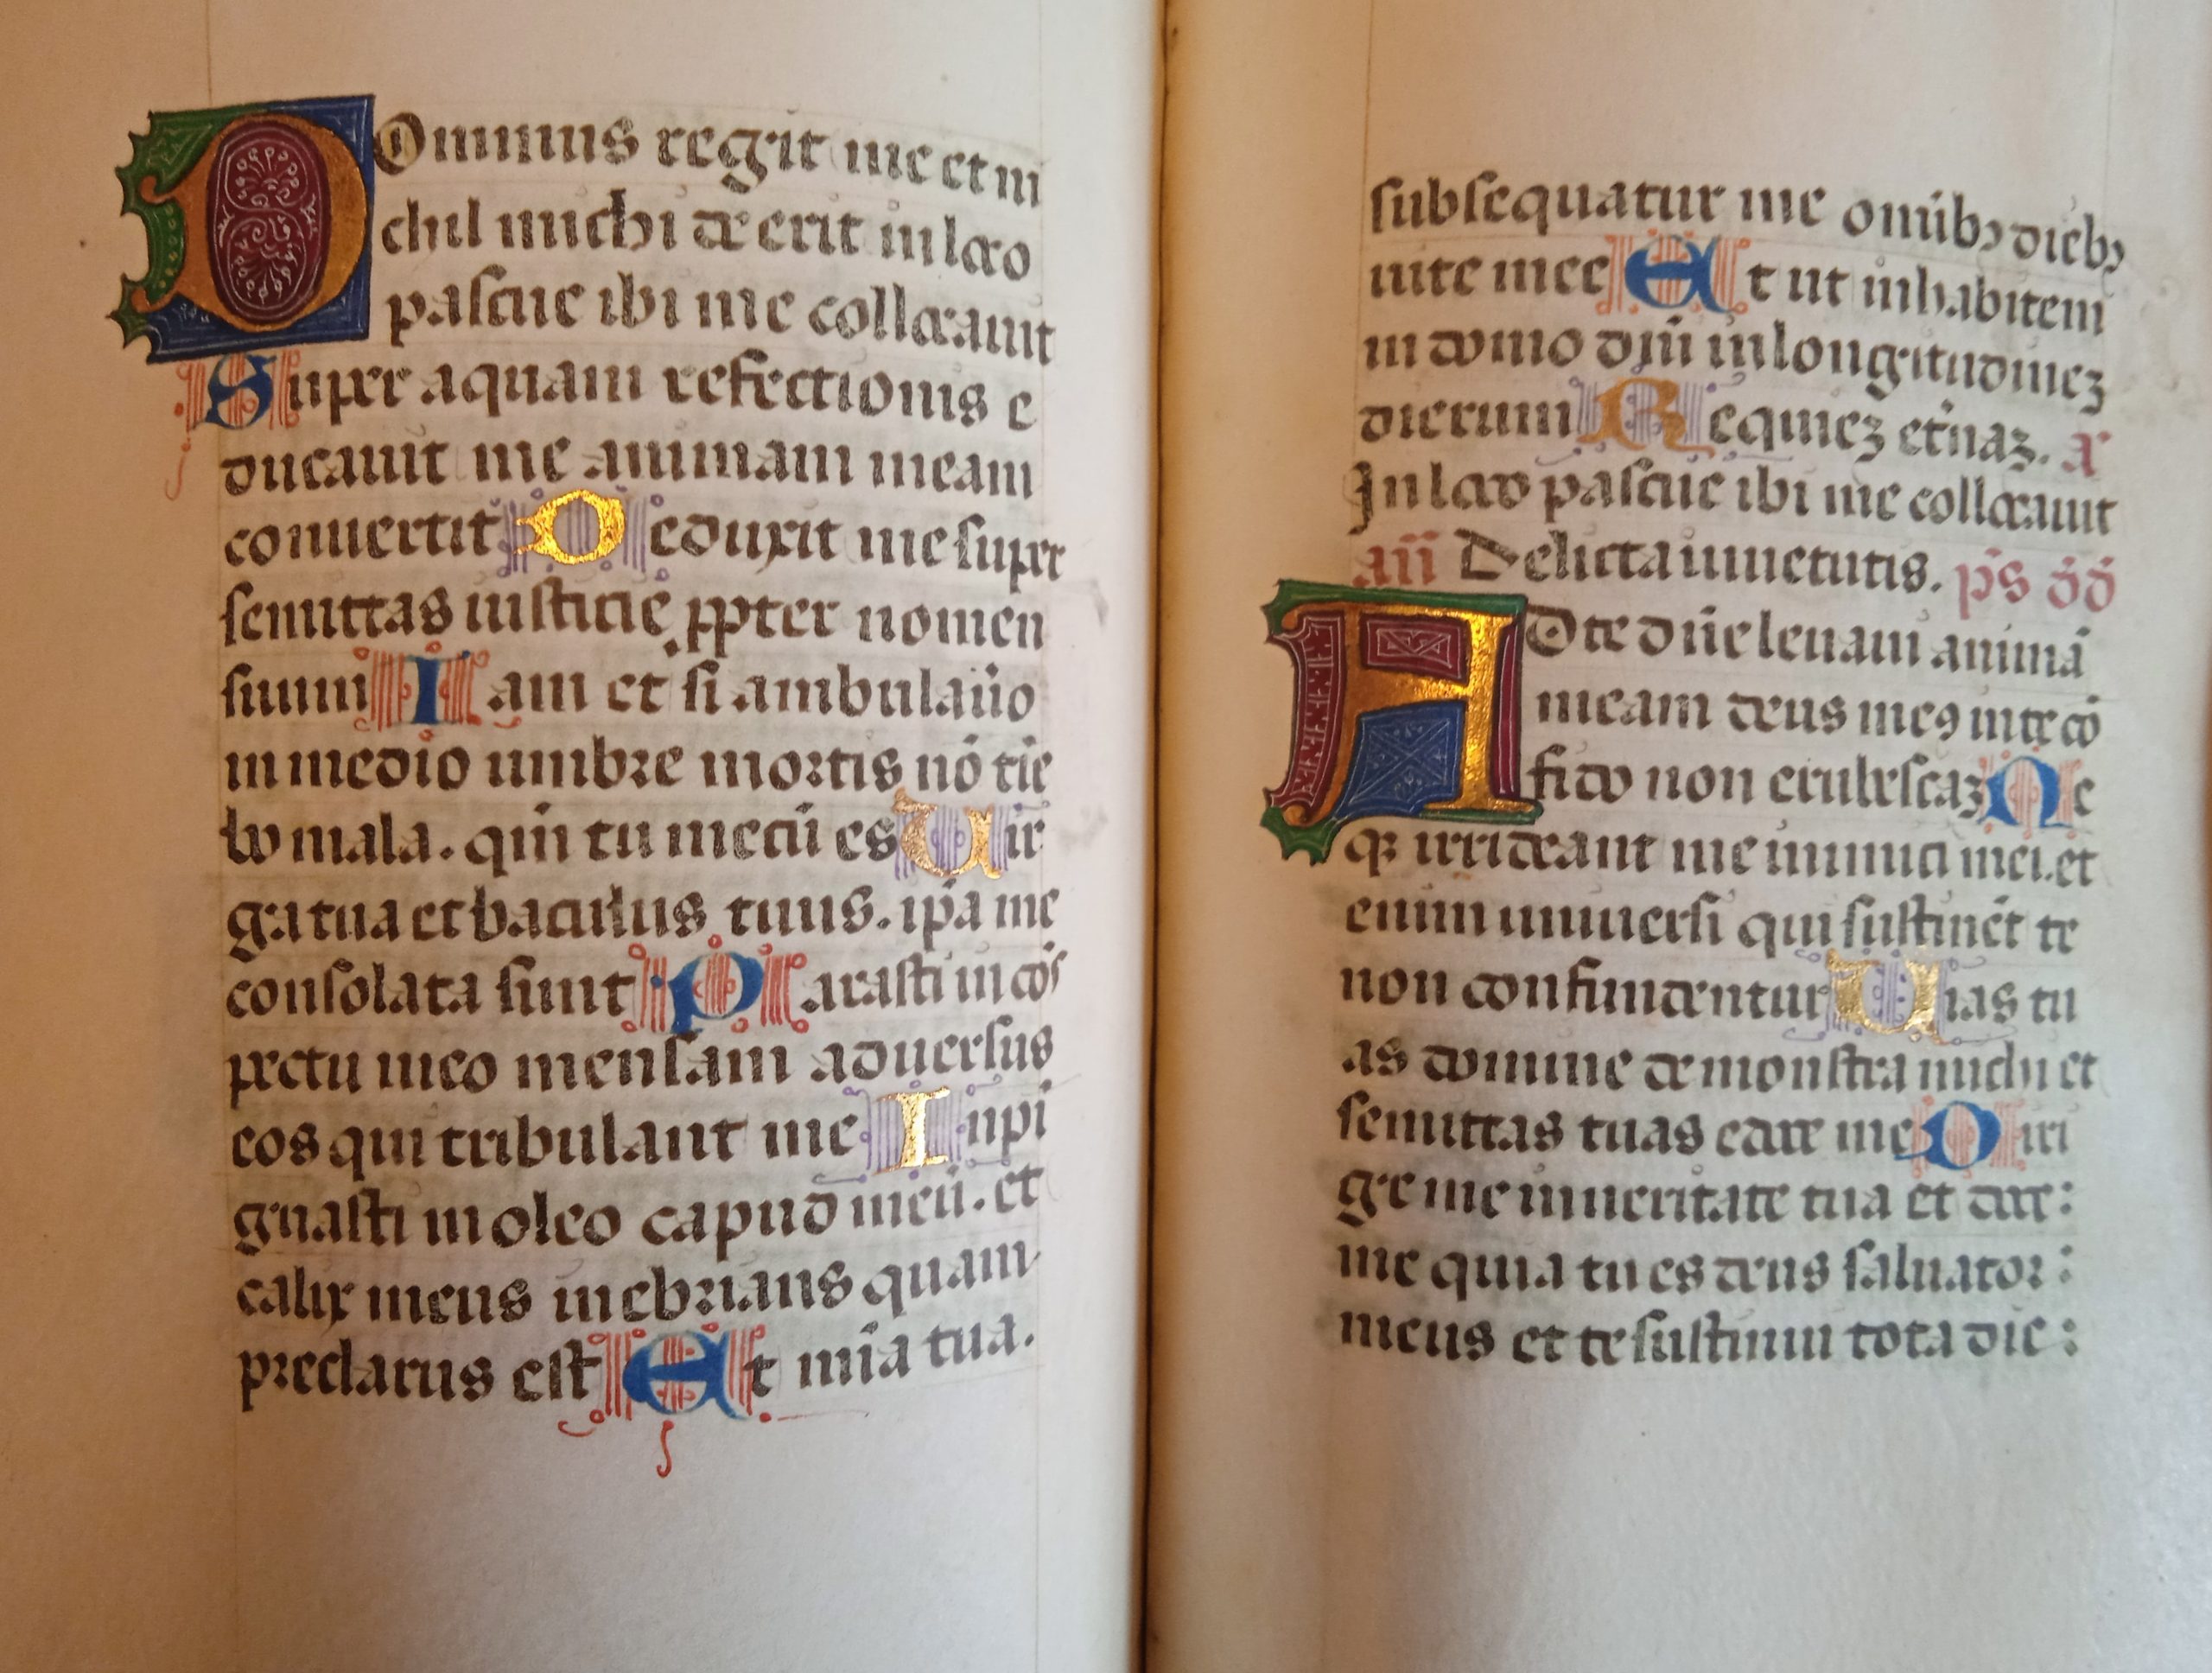 Dominus regit me et ni
chil michi deerit in loco
pascue ibi me collocauit
Super aquam refectionis e
ducauit me animam meam
conuertit Deduxit me super
semittas iusticie ꝓpter nomen
suum Iam et si ambulaũo
in medio umbre mortis nõ tiē
bo mala. qm̃ tu mecū es Uir
ga tua et baculus tuus. ip̃a me
consolata sunt Parasti in cõs
pectu meo mensam aduersus
eos qui tribulant me Inpi
gnasti in oleo capud meū. et
calix meus inebrians quam
preclarus est Et mĩa tua.
subsequatur me omĩbꝫ diebꝫ
uite mee Et ut inhabitem
in domo dñi in longitudineꝫ
dierum Requieꝫ et̃naꝫ. a᷑
In loco pascue ibi me collocauit
añ Delicta iuuetutis. p̃s dd̃
Ad te dñe leuaui animã
meam deus meꝯ in te cõ
fido non erubescaꝫ Ne
qꝫ irrideant me inimici mei. et
enim uniuersi qui sustinẽt te
non confundentur Uias tu
as domine demonstra michi et
semittas tuas edoce me Diri
ge me in ueritate tua et doce:
me quia tu es deus saluator:
meus et te sustinui tota die: